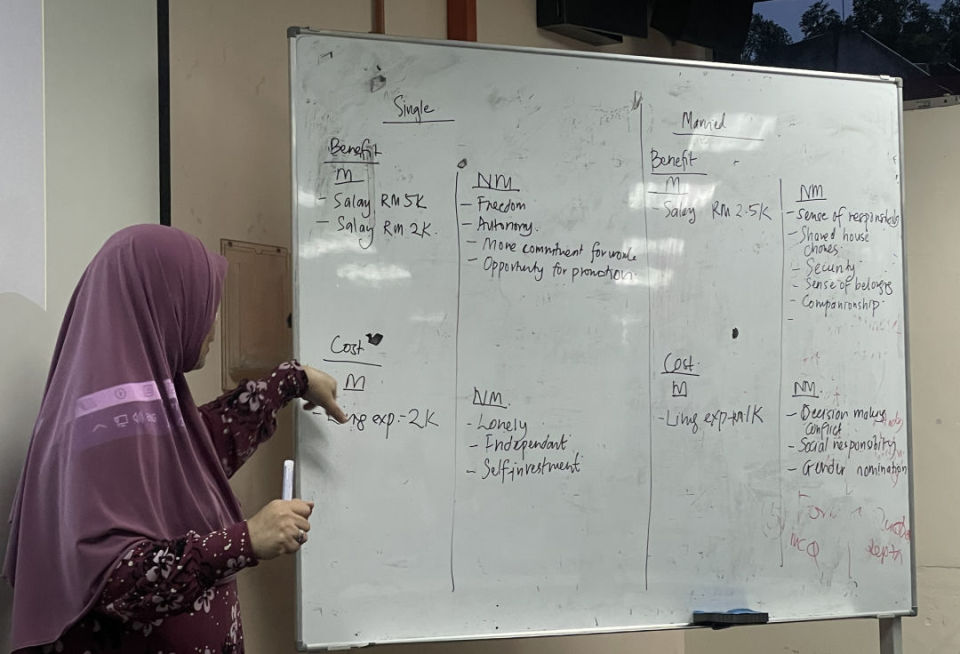 Single
Benefit
M
- Salary RM 5K
- Salary RM 2K.
NM
- Freedom
- Autonomy.
- More commitment for work
- Opportunity for promotion.
Cost
M
exp.- 2K
NM.
- Lonely
- Independant
- Self investment
Married
Benefit
M
- Salary RM 2.5K
NM
- Sense of responsibility
- Shared house
chores.
- Security
- Sense of belongs
- Companionship.
-
Cost.
M
- Living exp RM1K
NM.
- Decision making
conflict
- Social responsibility
- Gender nomination